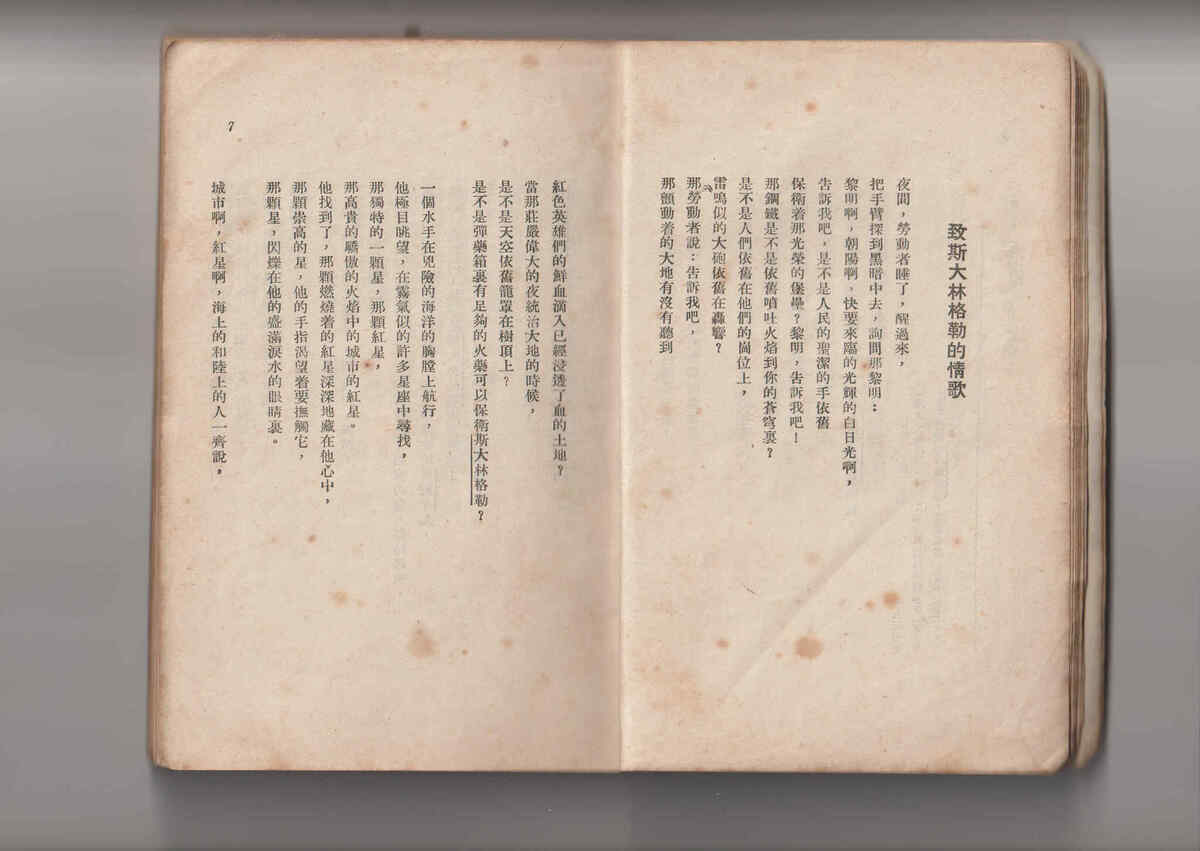 致斯大林格勒的情歌
夜間，勞動者睡了，醒過來，
把手臂探到黑暗中去，詢問那黎明：
黎明啊，朝陽啊，快要來臨的光輝的白日光啊，
告訴我吧，是不是人民的聖潔的手依舊
保衛着那光榮的堡壘？黎明，告訴我吧！
那鋼鐵是不是依舊噴吐火焰到你的蒼穹裏？
是不是人們依舊在他們的崗位上，
雷鳴似的大砲依舊在轟響？
那勞動者說：告訴我吧，
那顫動着的大地有沒有聽到
紅色英雄們的鮮血滴入已經浸透了血的土地？
當那莊嚴偉大的夜統治大地的時候，
是不是天空依舊籠罩在樹頂上？
是不是彈藥箱裏有足夠的火藥可以保衛斯大林格勒？
一個水手在兇險的海洋的胸膛上航行，
他極目眺望，在霧氣似的許多星座中尋找，
那獨特的一顆星，那顆紅星，
那高貴的驕傲的火焰中的城市的紅星。
他找到了，那顆燃燒着的紅星深深地藏在他心中，
那顆崇高的星，他的手指渴望着要撫觸它，
那顆星，閃爍在他的盛滿淚水的眼睛裏。
城市啊，紅星啊，海上的和陸上的人一齊說，
7